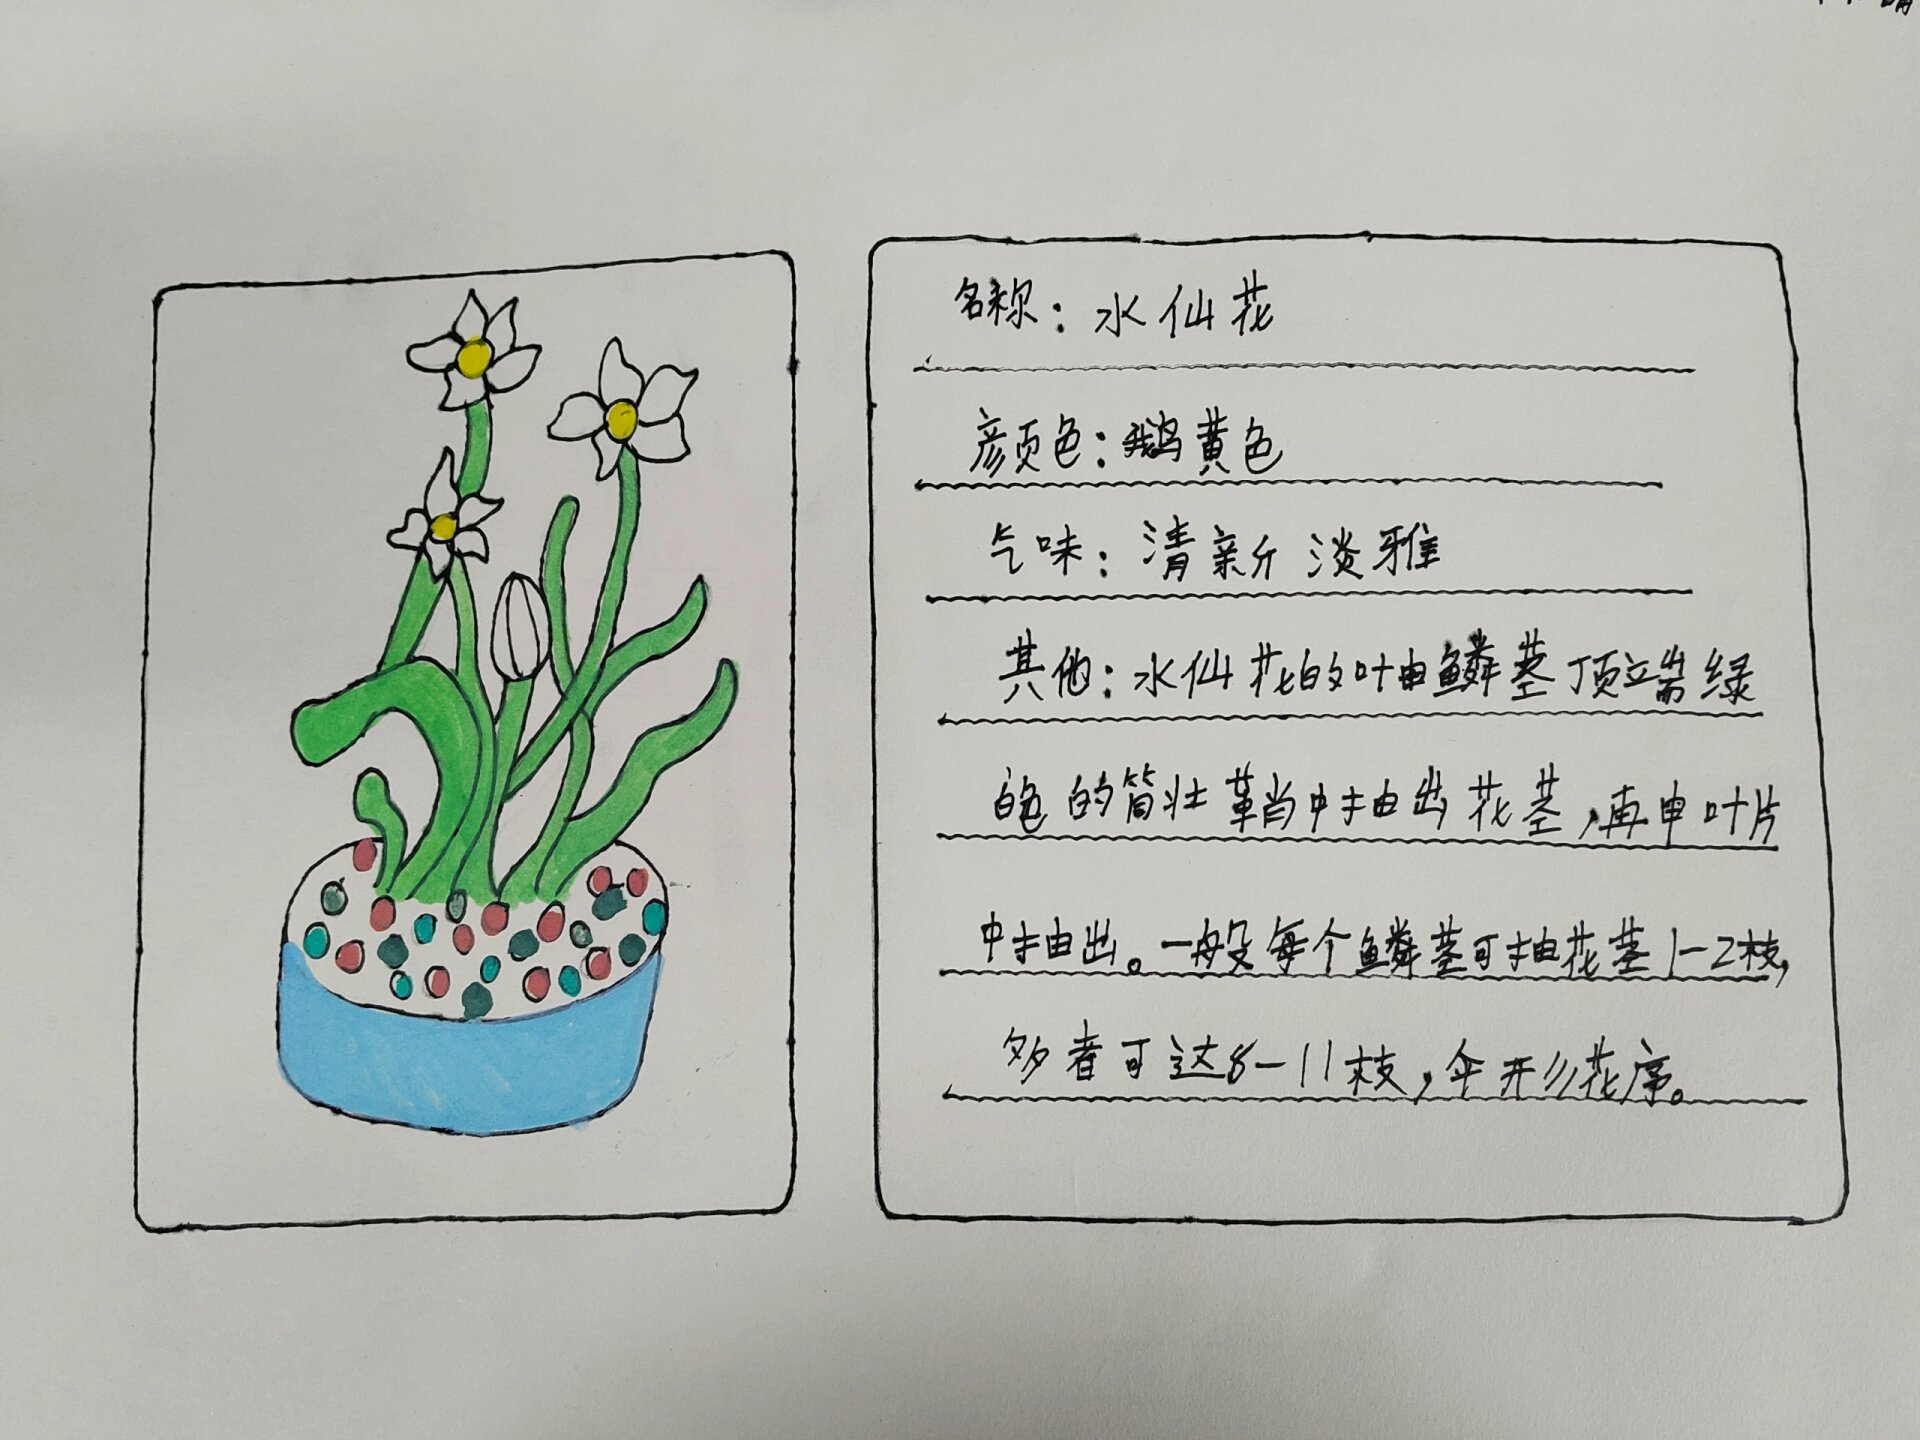 名称：水仙花
颜色：鹅黄色
气味：清新 淡雅
其他：水仙花的叶由鳞茎顶端绿
白色的筒壮革肖中抽出花茎，再申叶片
中抽出。一般每个鳞茎可抽花茎1-2枝，
多者可达8-11枝，伞形花序。